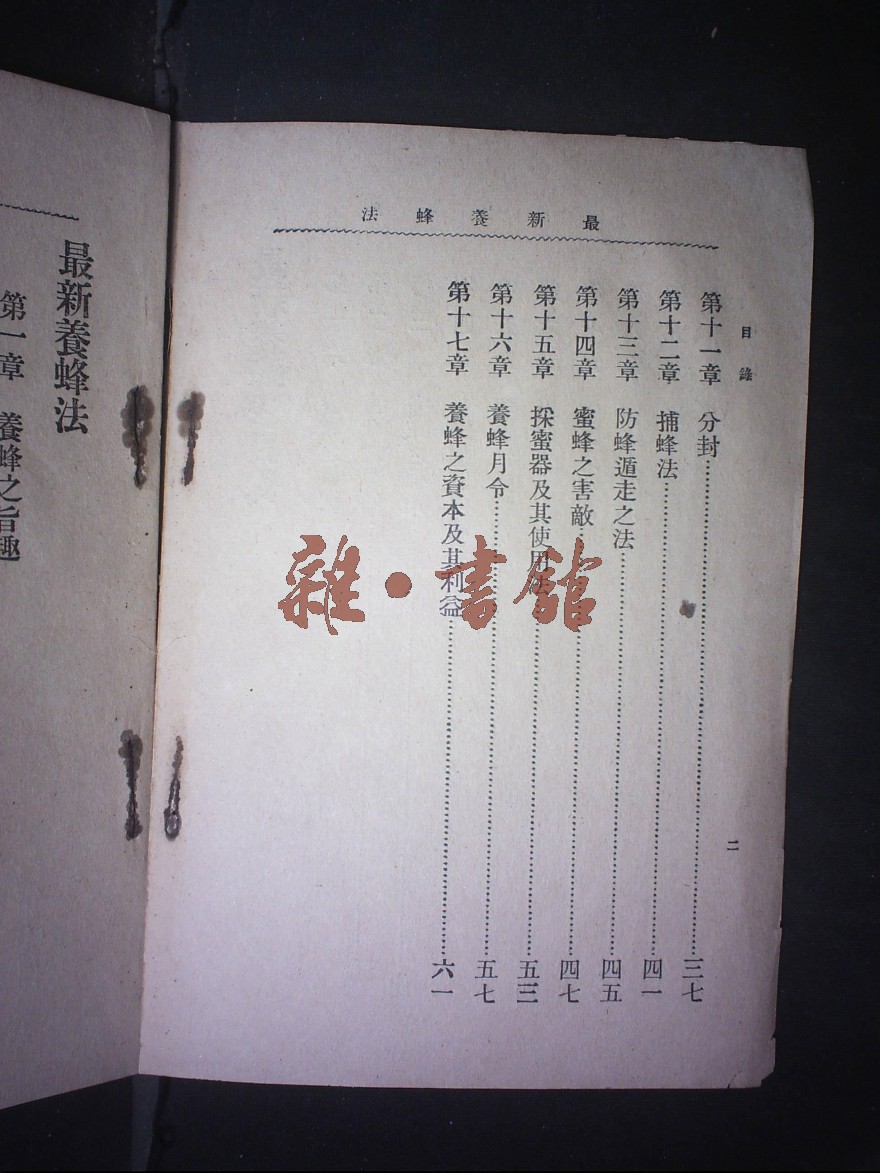 最新養蜂法
目錄
第十一章 分封……三七
第十二章 捕蜂法……四一
第十三章 防蜂遁走之法……四五
第十四章 蜜蜂之害敵……四七
第十五章 採蜜器及其使用法……五三
第十六章 養蜂月令……五七
第十七章 養蜂之資本及其利益……六一
二
最新養蜂法
第一章 養蜂之旨趣
雜·書館